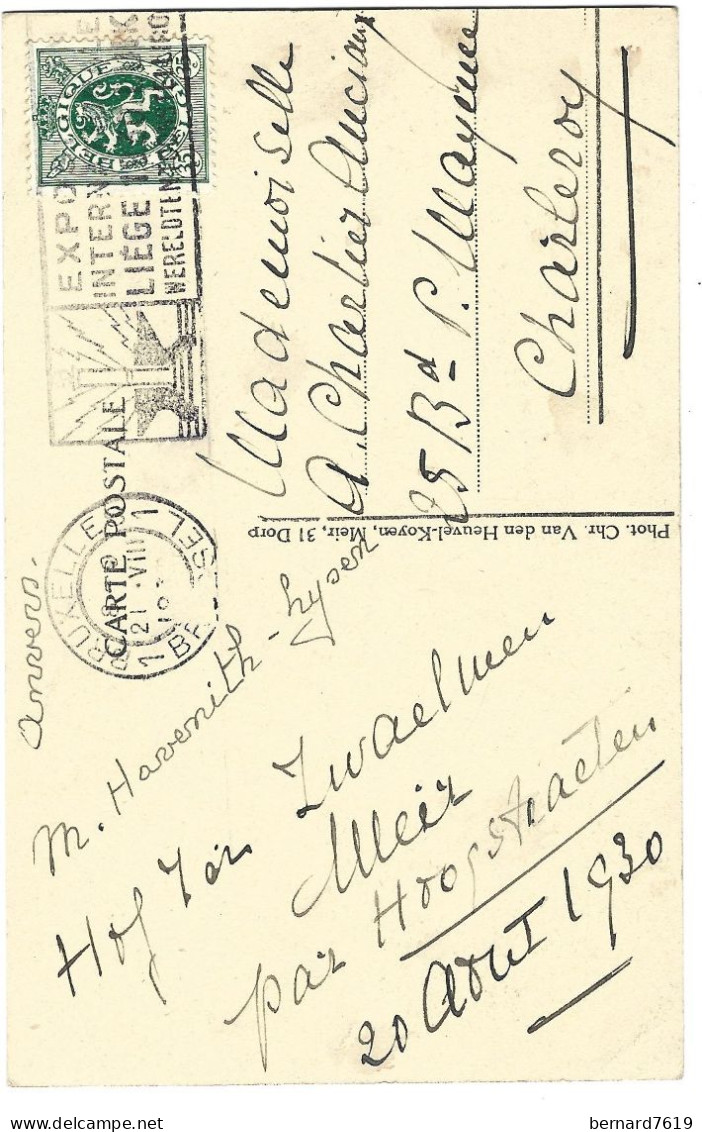 BELGIQUE
BELGIË
35
35
EXPO
INTERN
LIÉGE
WERELDTEN
CARTE POSTALE
BRUXELLES
1
1
21 VIII
BRUSSEL
Anvers.
M. Havenith - Lysen
Hof Ten Zwaelmen
Meir
par Hoogstraeten
20 Août 1930
Phot. Chr. Van den Heuvel-Koyen, Meir, 31 Dorp
Mademoiselle
A. Chartier Anciaux
25 Bd P. Mayence
Charleroy
bernard7619